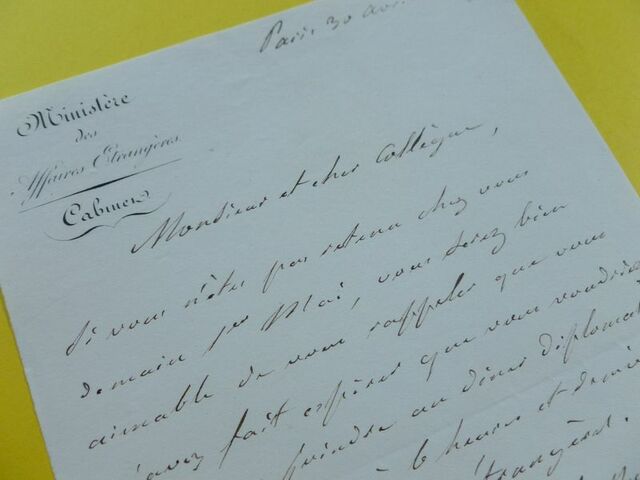 Paris 30 avr
Ministère
des
Affaires Etrangères
Cabinet
Monsieur et cher Collègue,
Si vous n'êtes pas retenu chez vous
demain 1er Mai, vous serez bien
aimable de vous rappeler que vous
avez fait espérer que vous voudriez
joindre au dîner diplomat
à 6 heures et demie
étrangères.